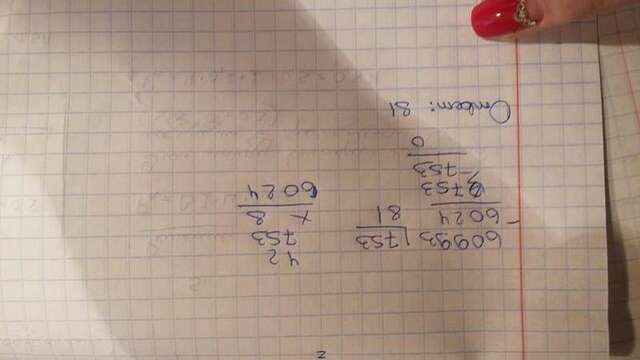 60993 | 753
- 6024 81
753
- 753
0
Ответ: 81
42
753
× 8
6024